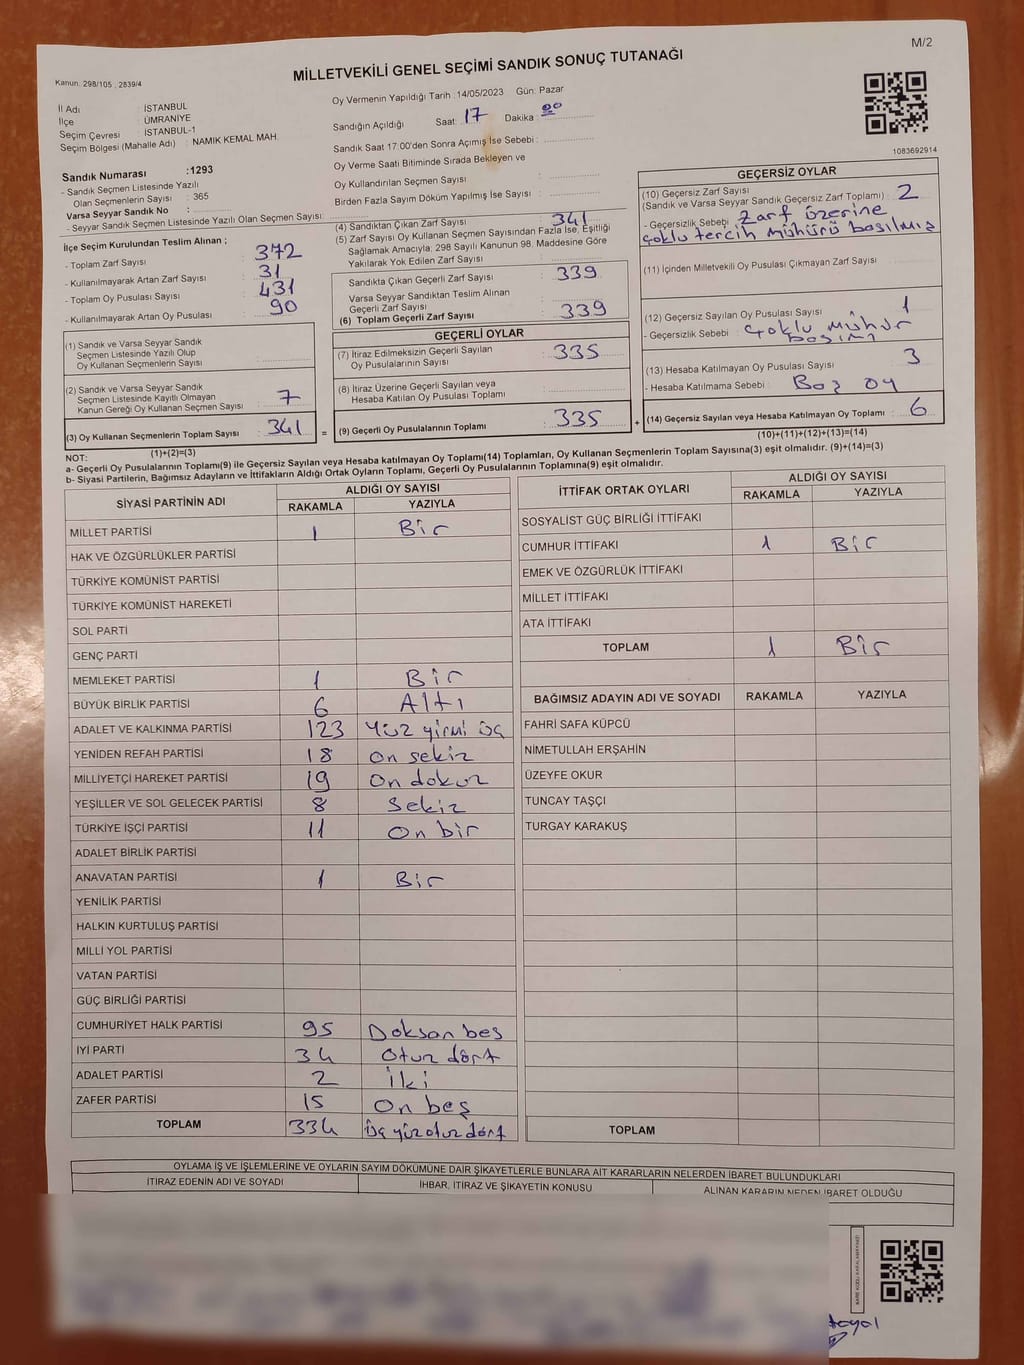 M/2
MİLLETVEKİLİ GENEL SEÇİMİ SANDIK SONUÇ TUTANAĞI
Kanun: 298/105 , 2839/4
İl Adı : İSTANBUL
İlçe : ÜMRANİYE
Seçim Çevresi : İSTANBUL-1
Seçim Bölgesi (Mahalle Adı) : NAMIK KEMAL MAH.
Oy Vermenin Yapıldığı Tarih :14/05/2023 Gün: Pazar
Sandığın Açıldığı Saat: 17 Dakika 00
Sandık Saat 17:00'den Sonra Açımış İse Sebebi :
Oy Verme Saati Bitiminde Sırada Bekleyen ve
Oy Kullandırılan Seçmen Sayısı :
Birden Fazla Sayım Döküm Yapılmış İse Sayısı :
1083692914
Sandık Numarası :1293
- Sandık Seçmen Listesinde Yazılı
Olan Seçmenlerin Sayısı : 365
Varsa Seyyar Sandık No :
- Seyyar Sandık Seçmen Listesinde Yazılı Olan Seçmen Sayısı:
İlçe Seçim Kurulundan Teslim Alınan ;
- Toplam Zarf Sayısı : 372
- Kullanılmayarak Artan Zarf Sayısı : 31
- Toplam Oy Pusulası Sayısı : 431
- Kullanılmayarak Artan Oy Pusulası : 90
(1) Sandık ve Varsa Seyyar Sandık
Seçmen Listesinde Yazılı Olup
Oy Kullanan Seçmenlerin Sayısı :
(2) Sandık ve Varsa Seyyar Sandık
Seçmen Listesinde Kayıtlı Olmayan
Kanun Gereği Oy Kullanan Seçmen Sayısı : 7
(3) Oy Kullanan Seçmenlerin Toplam Sayısı : 341
(1)+(2)=(3)
(4) Sandıktan Çıkan Zarf Sayısı : 341
(5) Zarf Sayısı Oy Kullanan Seçmen Sayısından Fazla İse, Eşitliği
Sağlamak Amacıyla; 298 Sayılı Kanunun 98. Maddesine Göre
Yakılarak Yok Edilen Zarf Sayısı :
Sandıkta Çıkan Geçerli Zarf Sayısı : 339
Varsa Seyyar Sandıktan Teslim Alınan
Geçerli Zarf Sayısı :
(6) Toplam Geçerli Zarf Sayısı : 339
GEÇERLİ OYLAR
(7) İtiraz Edilmeksizin Geçerli Sayılan
Oy Pusulalarının Sayısı : 335
(8) İtiraz Üzerine Geçerli Sayılan veya
Hesaba Katılan Oy Pusulası Toplamı :
= (9) Geçerli Oy Pusulalarının Toplamı : 335 +
GEÇERSİZ OYLAR
(10) Geçersiz Zarf Sayısı
(Sandık ve Varsa Seyyar Sandık Geçersiz Zarf Toplamı) : 2
- Geçersizlik Sebebi : Zarf üzerine
çoklu tercih mühürü basılmış
(11) İçinden Milletvekili Oy Pusulası Çıkmayan Zarf Sayısı :
(12) Geçersiz Sayılan Oy Pusulası Sayısı : 1
- Geçersizlik Sebebi : Çoklu mühür
basımı
(13) Hesaba Katılmayan Oy Pusulası Sayısı : 3
- Hesaba Katılmama Sebebi : Boş oy
(14) Geçersiz Sayılan veya Hesaba Katılmayan Oy Toplamı : 6
(10)+(11)+(12)+(13)=(14)
NOT:
a- Geçerli Oy Pusulalarının Toplamı(9) ile Geçersiz Sayılan veya Hesaba katılmayan Oy Toplamı(14) Toplamları, Oy Kullanan Seçmenlerin Toplam Sayısına(3) eşit olmalıdır. (9)+(14)=(3)
b- Siyasi Partilerin, Bağımsız Adayların ve İttifakların Aldığı Ortak Oyların Toplamı, Geçerli Oy Pusulalarının Toplamına(9) eşit olmalıdır.
SİYASİ PARTİNİN ADI ALDIĞI OY SAYISI
RAKAMLA YAZIYLA
MİLLET PARTİSİ 1 Bir
HAK VE ÖZGÜRLÜKLER PARTİSİ
TÜRKİYE KOMÜNİST PARTİSİ
TÜRKİYE KOMÜNİST HAREKETİ
SOL PARTİ
GENÇ PARTİ
MEMLEKET PARTİSİ 1 Bir
BÜYÜK BİRLİK PARTİSİ 6 Altı
ADALET VE KALKINMA PARTİSİ 123 Yüz yirmi üç
YENİDEN REFAH PARTİSİ 18 On sekiz
MİLLİYETÇİ HAREKET PARTİSİ 19 On dokuz
YEŞİLLER VE SOL GELECEK PARTİSİ 8 Sekiz
TÜRKİYE İŞÇİ PARTİSİ 11 On bir
ADALET BİRLİK PARTİSİ
ANAVATAN PARTİSİ 1 Bir
YENİLİK PARTİSİ
HALKIN KURTULUŞ PARTİSİ
MİLLİ YOL PARTİSİ
VATAN PARTİSİ
GÜÇ BİRLİĞİ PARTİSİ
CUMHURİYET HALK PARTİSİ 95 Doksan beş
İYİ PARTİ 34 Otuz dört
ADALET PARTİSİ 2 İki
ZAFER PARTİSİ 15 On beş
TOPLAM 334 üç yüz otuz dört
İTTİFAK ORTAK OYLARI ALDIĞI OY SAYISI
RAKAMLA YAZIYLA
SOSYALİST GÜÇ BİRLİĞİ İTTİFAKI
CUMHUR İTTİFAKI 1 Bir
EMEK VE ÖZGÜRLÜK İTTİFAKI
MİLLET İTTİFAKI
ATA İTTİFAKI
TOPLAM 1 Bir
BAĞIMSIZ ADAYIN ADI VE SOYADI RAKAMLA YAZIYLA
FAHRİ SAFA KÜPCÜ
NİMETULLAH ERŞAHİN
ÜZEYFE OKUR
TUNCAY TAŞÇI
TURGAY KARAKUŞ
TOPLAM
OYLAMA İŞ VE İŞLEMLERİNE VE OYLARIN SAYIM DÖKÜMÜNE DAİR ŞİKAYETLERLE BUNLARA AİT KARARLARIN NELERDEN İBARET BULUNDUKLARI
İTİRAZ EDENİN ADI VE SOYADI İHBAR, İTİRAZ VE ŞİKAYETİN KONUSU ALINAN KARARIN NEDEN İBARET OLDUĞU